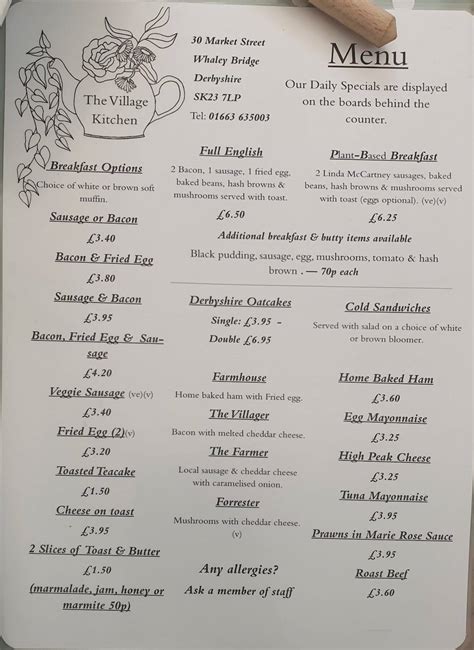 The Village
Kitchen
30 Market Street
Whaley Bridge
Derbyshire
SK23 7LP
Tel: 01663 635003
Menu
Our Daily Specials are displayed
on the boards behind the
counter.
Breakfast Options
Choice of white or brown soft
muffin.
Sausage or Bacon
£3.40
Bacon & Fried Egg
£3.80
Sausage & Bacon
£3.95
Bacon, Fried Egg & Sau-
sage
£4.20
Veggie Sausage (ve)(v)
£3.40
Fried Egg (2)(v)
£3.20
Toasted Teacake
£1.50
Cheese on toast
£3.95
2 Slices of Toast & Butter
£1.50
(marmalade, jam, honey or
marmite 50p)
Full English
2 Bacon, 1 sausage, 1 fried egg,
baked beans, hash browns &
mushrooms served with toast.
£6.50
Plant-Based Breakfast
2 Linda McCartney sausages, baked
beans, hash browns & mushrooms served
with toast (eggs optional). (ve)(v)
£6.25
Additional breakfast & butty items available
Black pudding, sausage, egg, mushrooms, tomato & hash
brown . — 70p each
Derbyshire Oatcakes
Single: £3.95 –
Double £6.95
Farmhouse
Home baked ham with Fried egg.
The Villager
Bacon with melted cheddar cheese.
The Farmer
Local sausage & cheddar cheese
with caramelised onion.
Forrester
Mushrooms with cheddar cheese.
(v)
Any allergies?
Ask a member of staff
Cold Sandwiches
Served with salad on a choice of white
or brown bloomer.
Home Baked Ham
£3.60
Egg Mayonnaise
£3.25
High Peak Cheese
£3.25
Tuna Mayonnaise
£3.95
Prawns in Marie Rose Sauce
£3.95
Roast Beef
£3.60